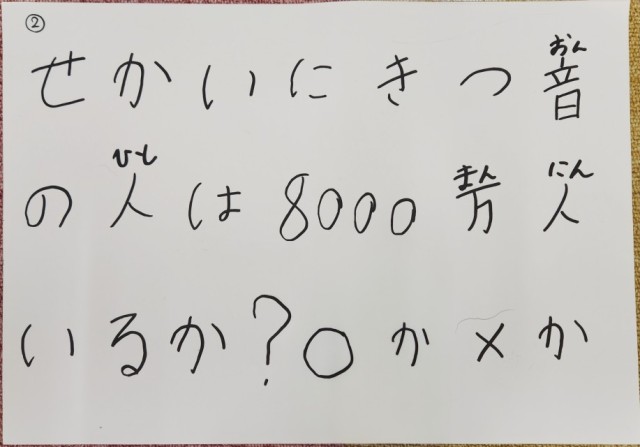 ②
せかいにきつ音
の人は8000万人
いるか?○か×か